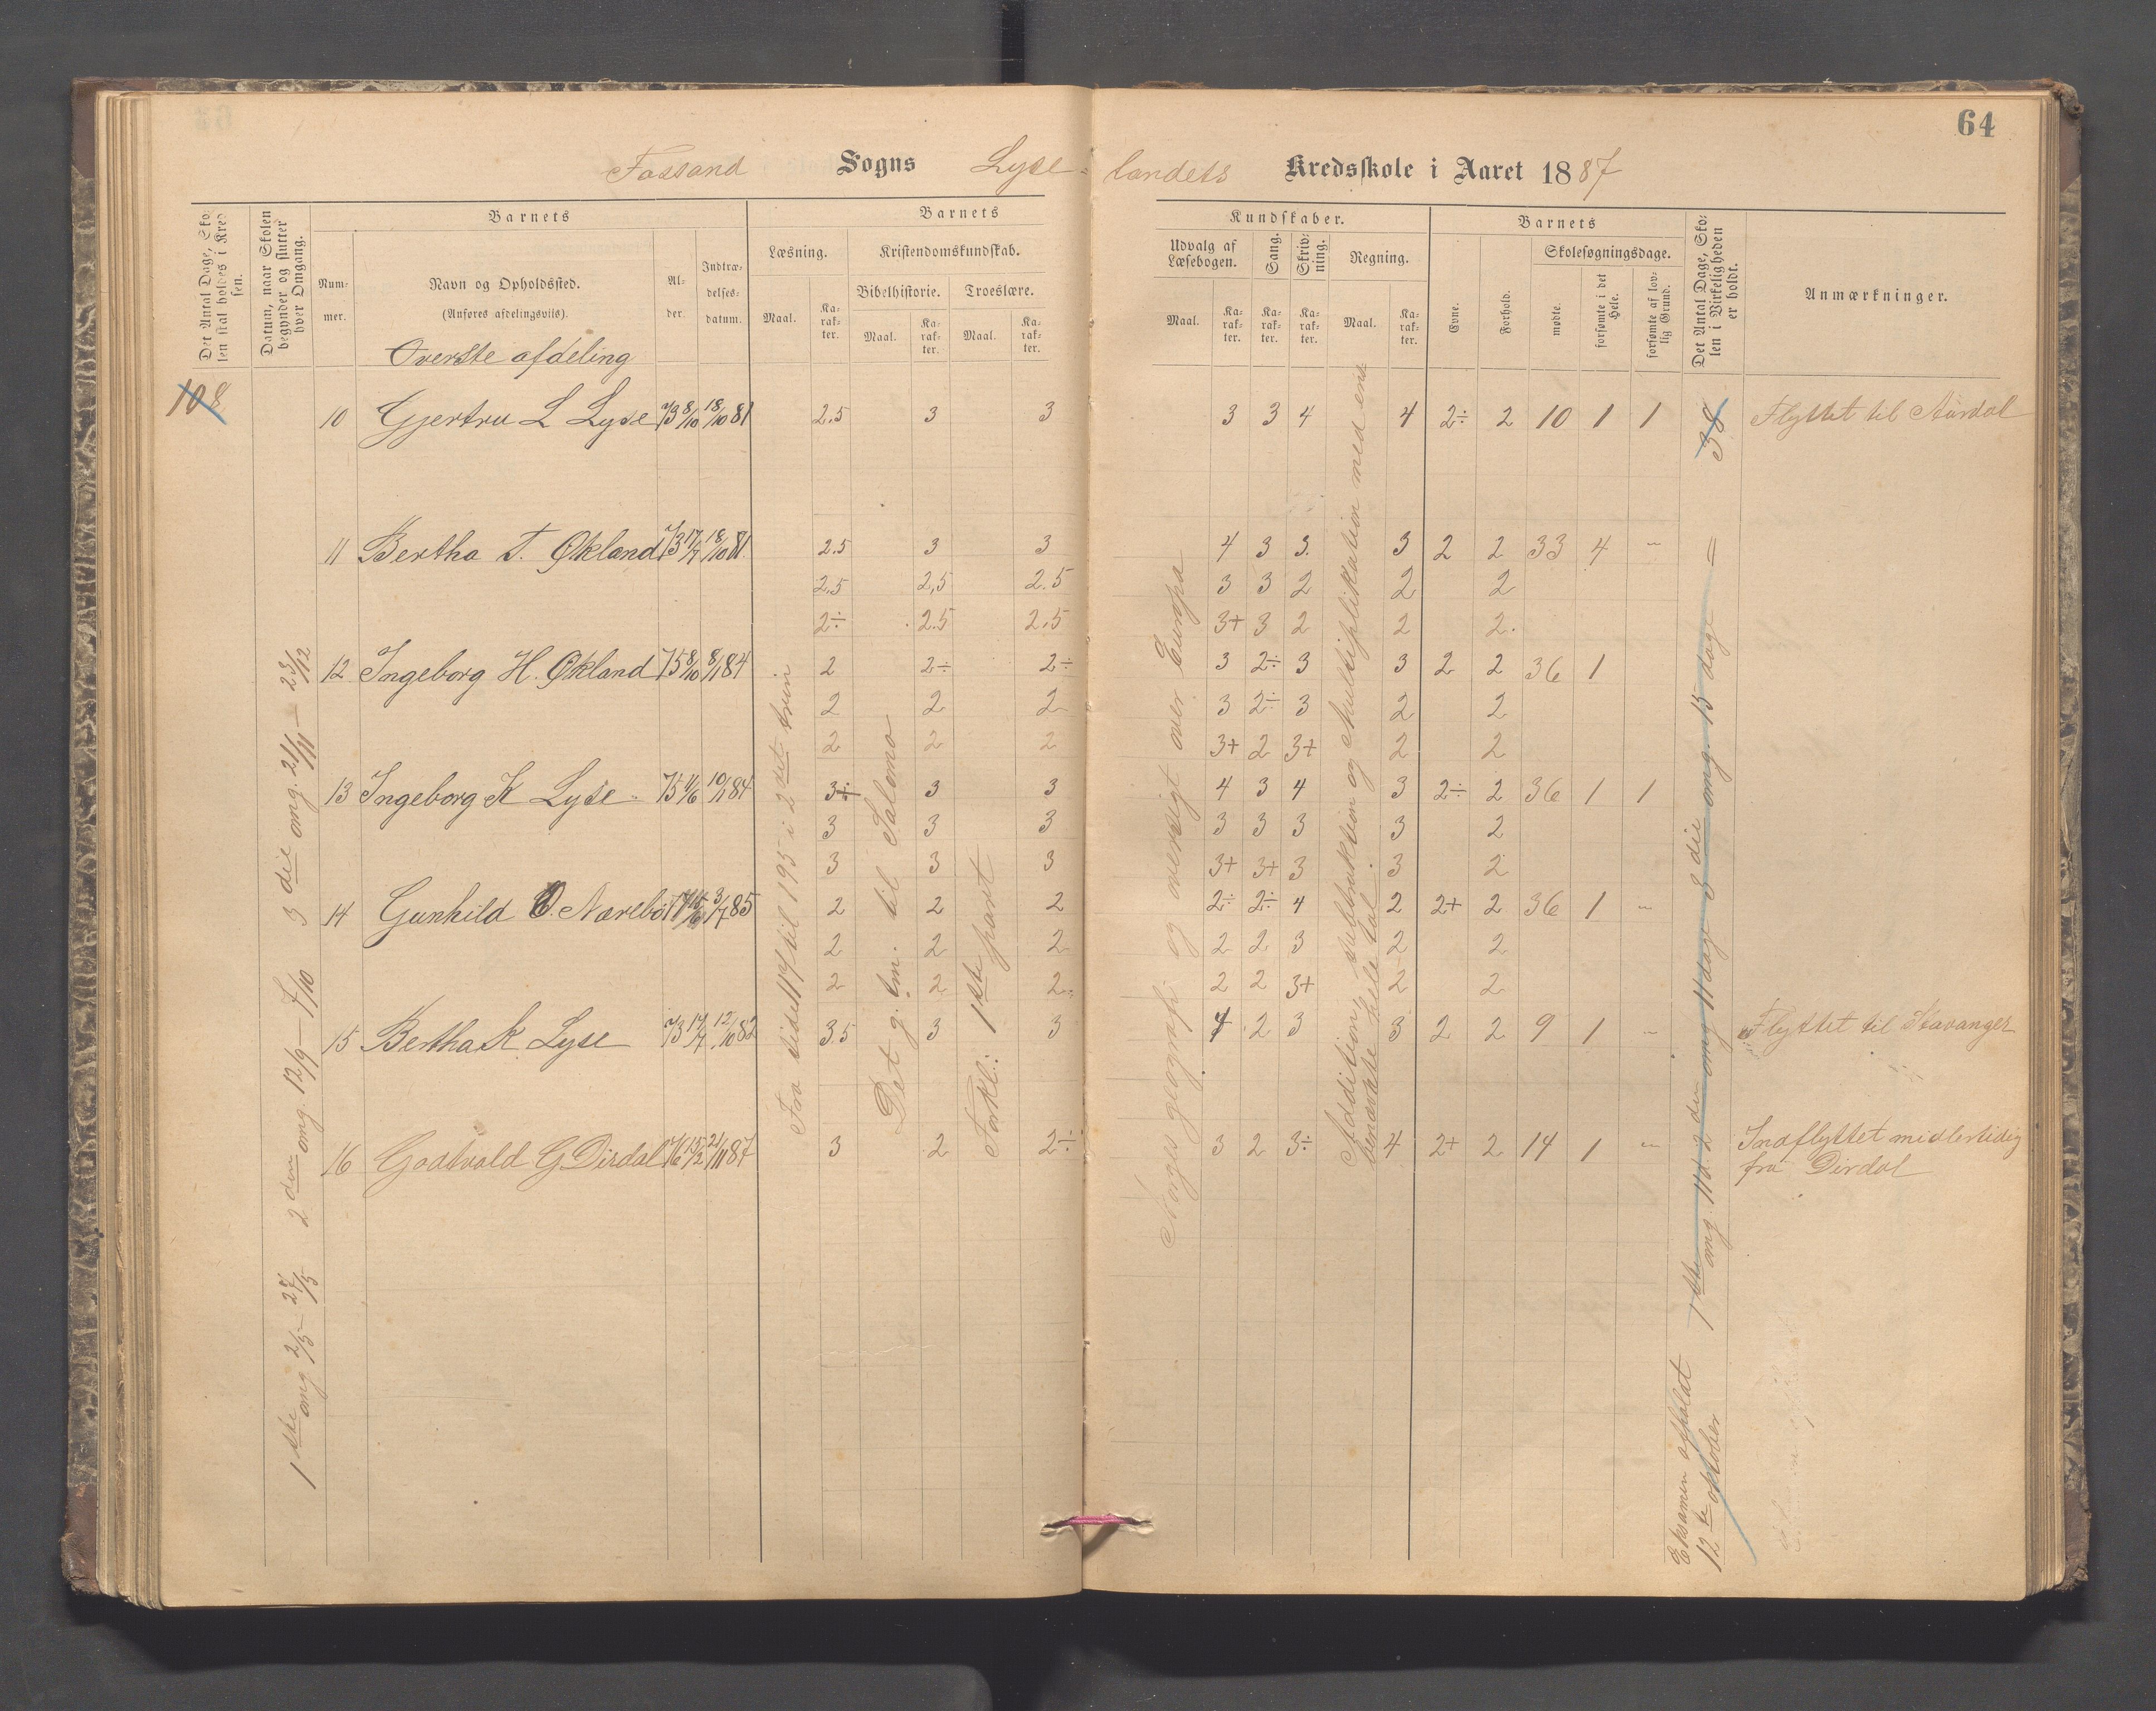 64
Fossand Sogns Lyse-landets Kredsskole i Aaret 1887
Det Antal Dage, Skolen skal holdes i Kredsen.
Datum, naar Skolen begynder og slutter hver Omgang.
Barnets
Nummer.
Navn og Opholdssted.
(Anføres afdelingsviis).
Alder.
Indtrædelsesdatum.
Barnets
Læsning.
Maal.
Karakter.
Kristendomskundskab.
Bibelhistorie.
Maal.
Karakter.
Troeslære.
Maal.
Karakter.
Kundskaber.
Udvalg af Læsebogen.
Maal.
Karakter.
Sang.
Karakter.
Skrivning.
Karakter.
Regning.
Maal.
Karakter.
Barnets
Evne.
Forhold.
Skolesøgningsdage.
mødte.
forsømte i det Hele.
forsømte af lovlig Grund.
Det Antal Dage, Skolen i Virkeligheden er holdt.
Anmærkninger.
Øverste afdeling
108
10 Gjertru L Lyse 73 8/10 18/10 81 2.5 3 3 3 3 4 4 2÷ 2 10 1 1 38 Flyttet til Aardal
11 Bertha T. Økland 73 17/7 18/10 81. 2.5 3 3 4 3 3. 3 2 2 33 4 -
2.5 2,5 2.5 3 3 2 2 2
2÷ 2.5 2.5 3+ 3 2 2 2.
12 Ingeborg H. Økland 75 8/10 8/1 84 2 2÷ 2÷ 3 2÷ 3 3 2 2 36 1
2 2 2 3 2÷ 3 2 2
2 2 2 3+ 2 3+ 2 2
13 Ingeborg K Lyse 75 1/6 10/1 84 3÷ 3 3 4 3 4 3 2÷ 2 36 1 1
3 3 3 3 3 3 3 2
3 3 3 3+ 3+ 3 3 2
14 Gunhild O. Nærebö 3/7 85 2 2 2 2÷ 2÷ 4 2 2+ 2 36 1 -
2 2 2 2 2 3 2 2
2 2 2 2 2 3+ 2 2
15 Bertha K. Lyse 73 17/7 12/10 82 3.5 3 3 4 2 3 3 2 2 9 1 - Flyttet til Stavanger
16 Godtvald G. Dirdal 76 15/2 21/11 87 3 2 2÷ 3 2 3÷ 4 2+ 2 14 1 - Indflyttet midlertidig
fra Dirdal
1ste omg 2/5 – 27/5 2den omg. 12/9 – 7/10 3die omg. 21/11 – 23/12
Fra side 114 til 195 i 2det trin
Det g. tm. til Salomo
Forkl: 1ste part
Norges geografi og oversigt over Europa
Addition subtraktion og multiplikation med ens
benævnte hele tal.
1ste omg. 11 d 2den omg 11 dage 3die omg. 15 dage =
Eksamen afholdt
12te oktober